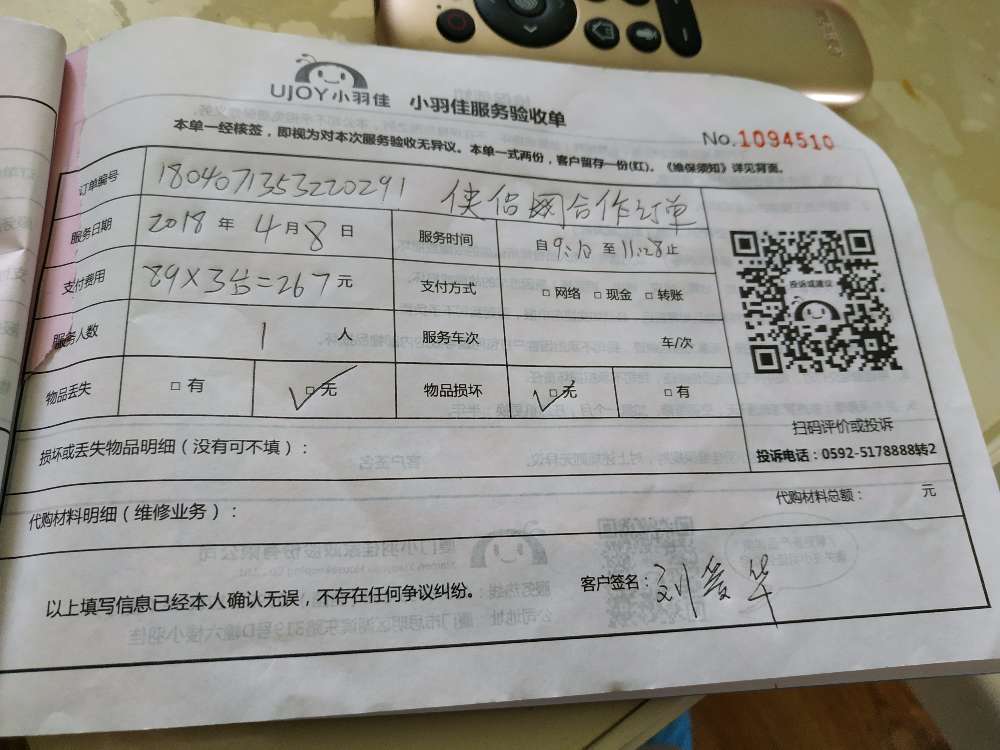 UJOY小羽佳 小羽佳服务验收单
本单一经核签，即视为对本次服务验收无异议。本单一式两份，客户留存一份(红)。《维保须知》详见背面。
No.1094510
订单编号 1804071353220291 侠侣网合作订单
服务日期 2018 年 4 月 8 日 服务时间 自 9:10 至 11:28 止
支付费用 89×3台=267 元 支付方式 □ 网络 □ 现金 □ 转账
服务人数 1 人 服务车次 车/次
物品丢失 □ 有 □ 无 物品损坏 □ 无 □ 有
投诉或建议
扫码评价或投诉
投诉电话：0592-5178888转2
损坏或丢失物品明细（没有可不填）：
代购材料明细（维修业务）： 代购材料总额： 元
以上填写信息已经本人确认无误，不存在任何争议纠纷。 客户签名：刘爱华